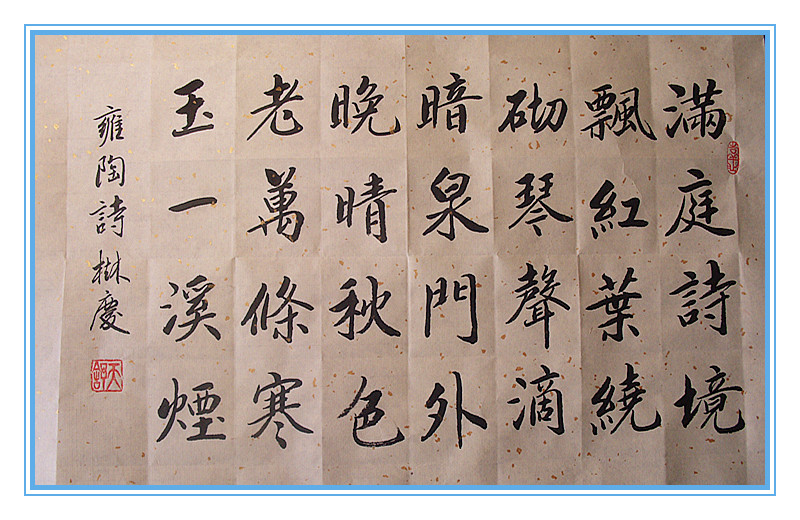 滿庭詩境
飄紅葉繞
砌琴聲滴
暗泉門外
晚晴秋色
老萬條寒
玉一溪煙
雍陶詩林慶